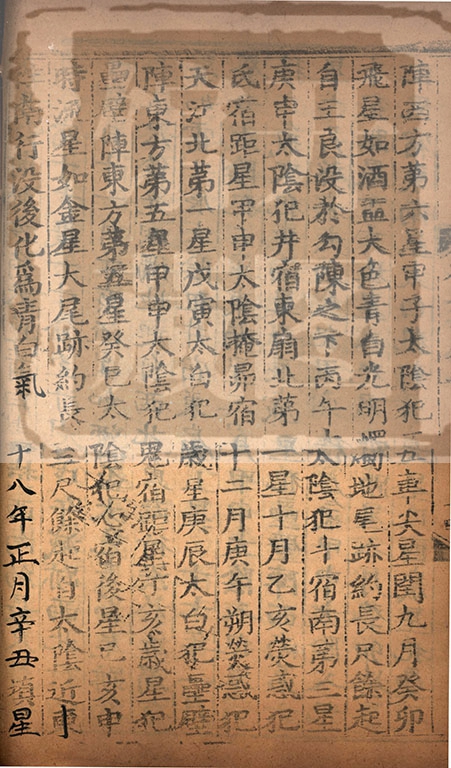 陣西方第六星甲子太陰犯五車大星閏九月癸卯
飛星如酒盃大色青白光明燭地尾跡約長尺餘起
自王良没於勾陳之下丙午太陰犯斗宿南第三星
庚申太陰犯井宿東扇北第一星十月乙亥熒惑犯
氐宿距星甲申太陰掩昴宿十二月庚午朔熒惑犯
天江北第一星戊寅太白犯歲星庚辰太白犯壘壁
陣東方第五星甲申太陰犯鬼宿距星丁亥歲星犯
壘壁陣東方第五星癸巳太陰犯心宿後星己亥申
時流星如金星大尾跡約長三尺餘起自太陰近東
往南行没後化爲青白氣十八年正月辛丑填星